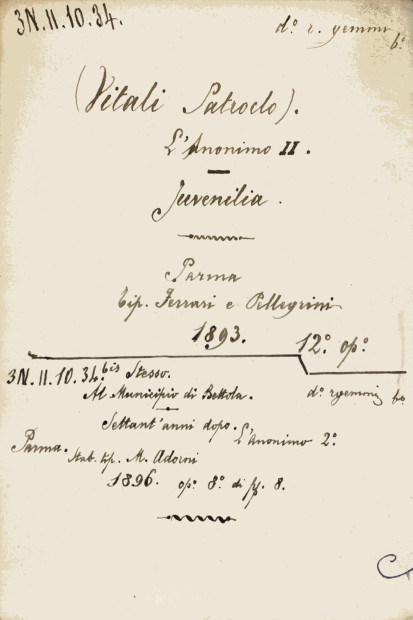 3N.II.10.34.
d.º r. gemmi
b.º
(Vitali Patroclo).
L'Anonimo II.
Juvenilia.
Parma
Tip. Ferrari e Pellegrini
1893. 12.º op.º
3N.II.10.34.bis Stesso.
Al Municipio di Bettola.
d.º r gemmi b.º
Settant'anni dopo. L'Anonimo 2.º
Parma. Stab. tip. M. Adorni
1896. op.º 8.º di pp. 8.